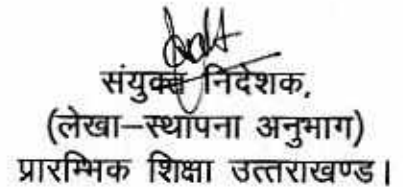 संयुक्त निदेशक,
(लेखा–स्थापना अनुभाग)
प्रारम्भिक शिक्षा उत्तराखण्ड।